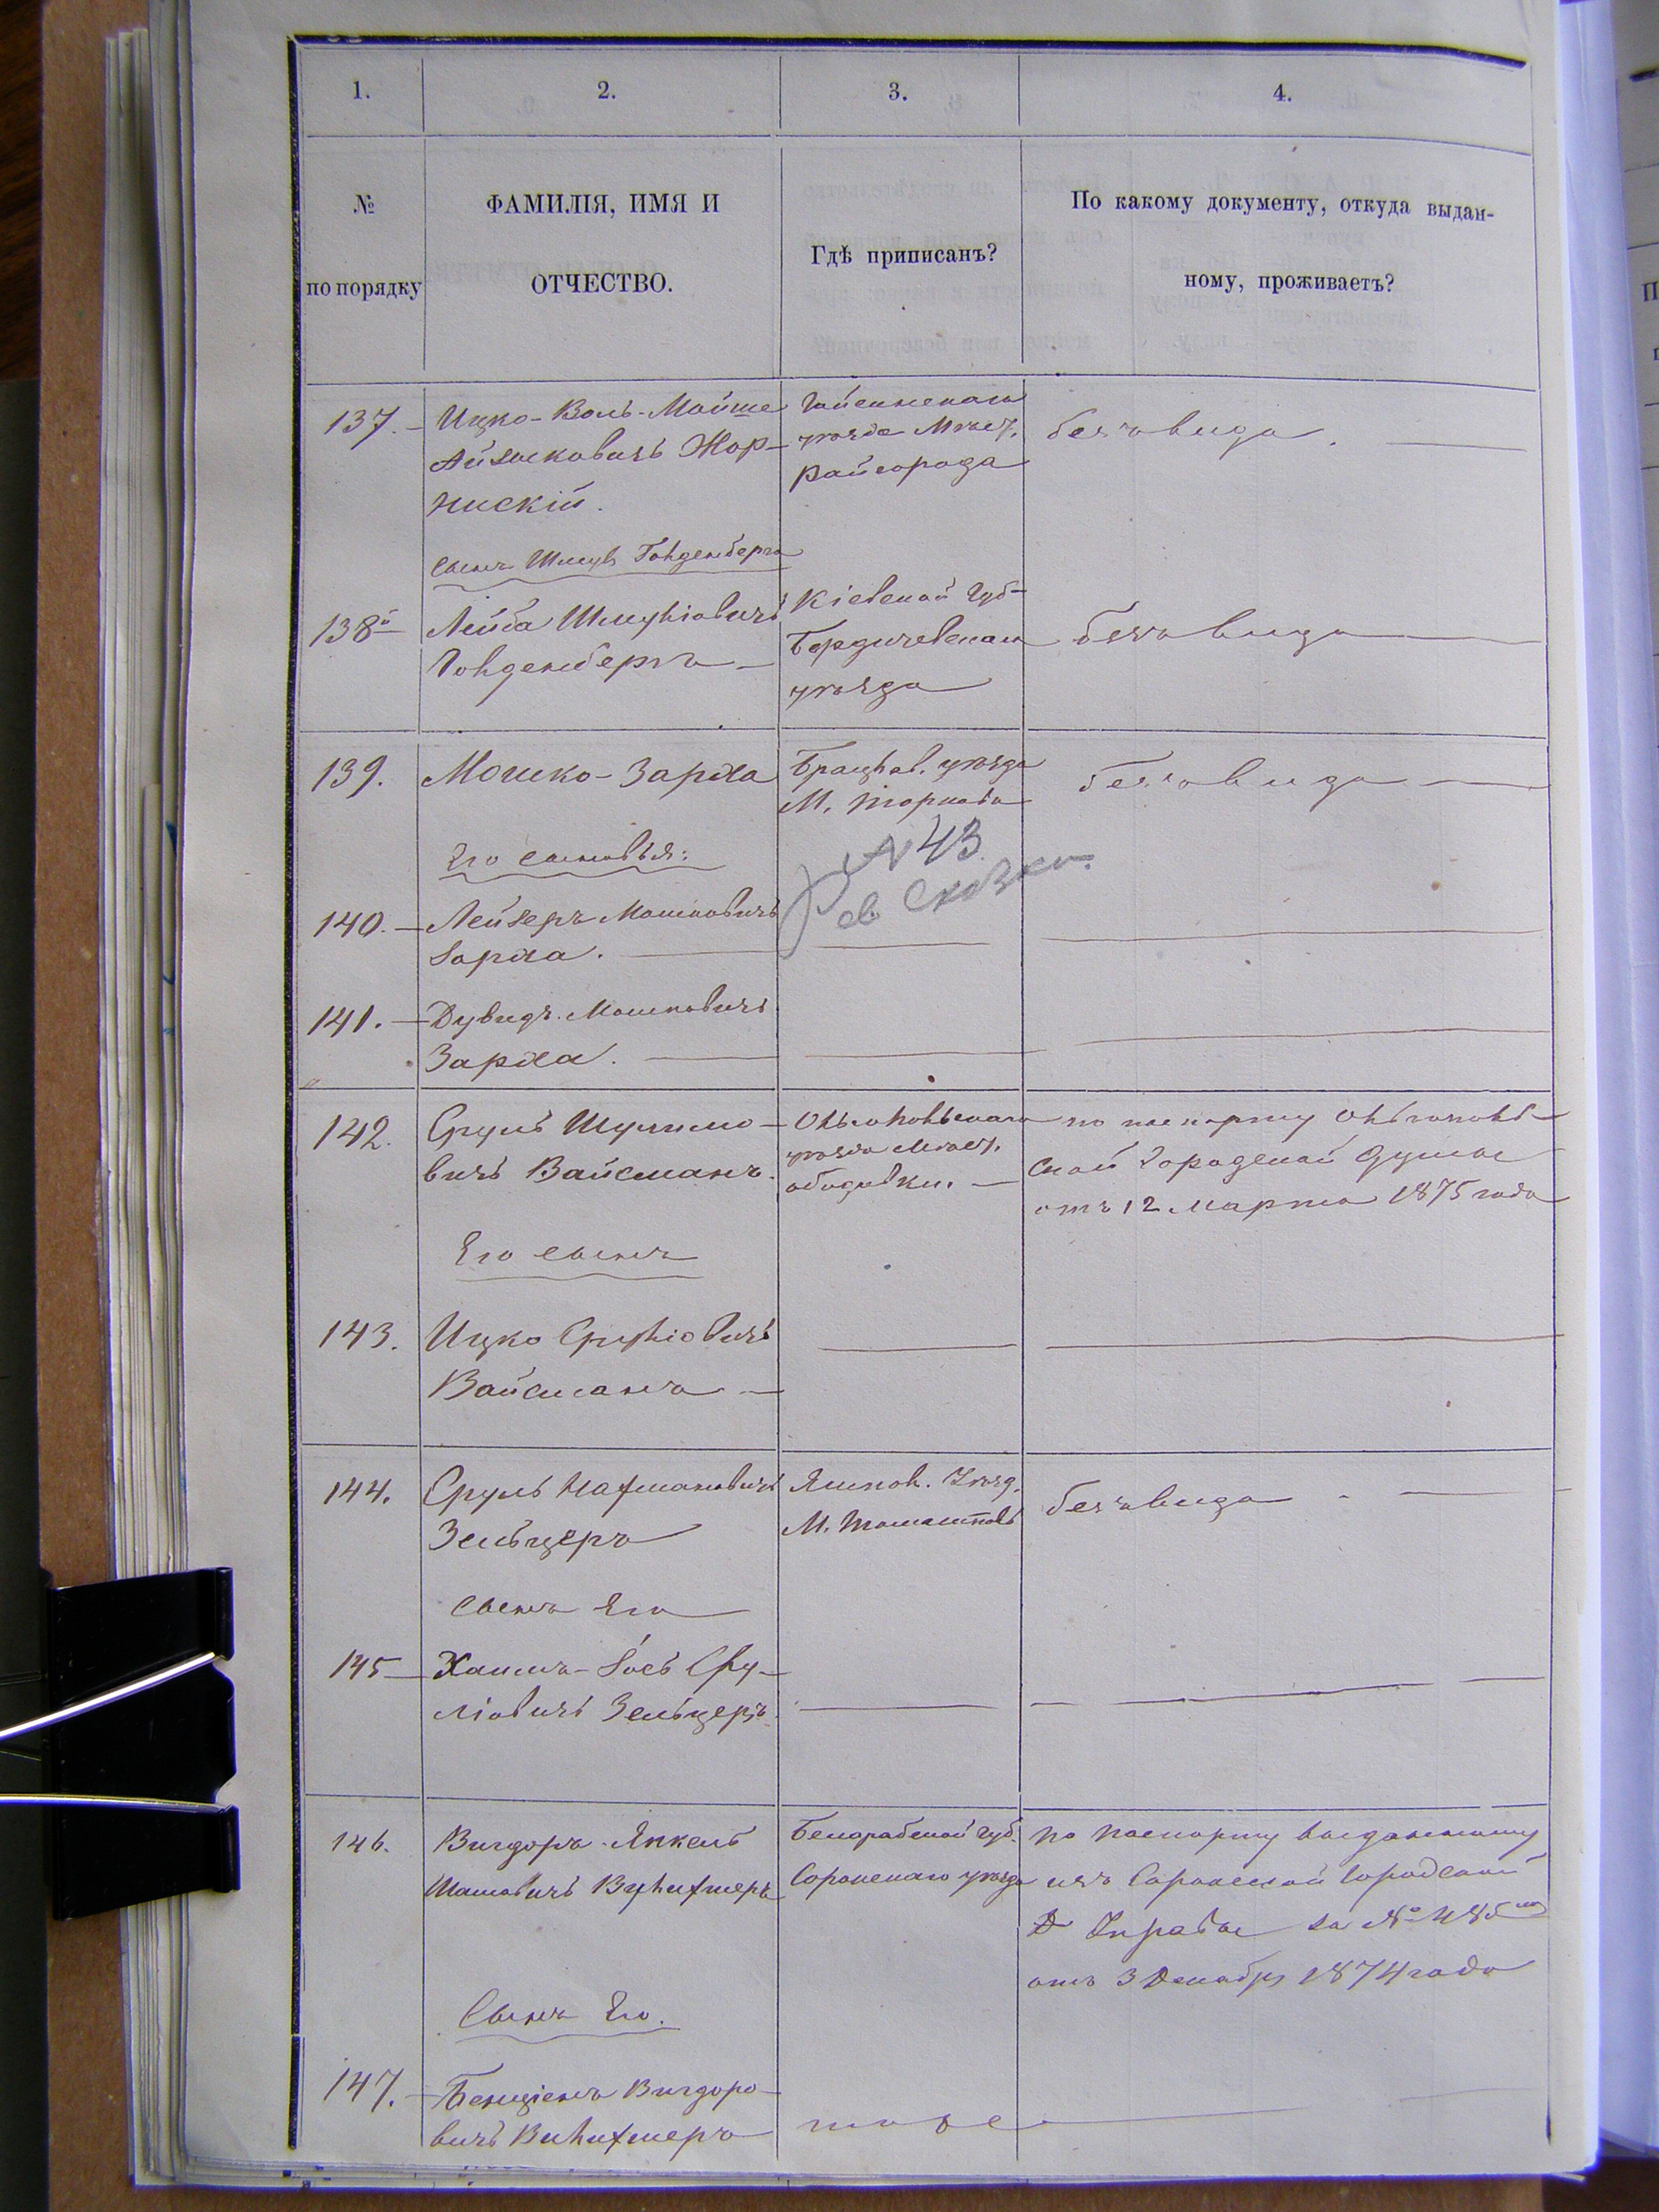 1. 2. 3. 4.
№ по порядку
ФАМИЛІЯ, ИМЯ И
ОТЧЕСТВО.
Гдѣ приписанъ?
По какому документу, откуда выдан-
ному, проживаетъ?
137.
Ицко-Воль-Мойше
Айзиковичъ Жор-
нискій.
Гайсинскаго
уѣзда Мѣст.
Райгорода
безъ вида.
сынъ Шмуля Гольденберга
138й
Лейба Шмуліовичъ
Гольденбергъ
Кіевской губ
Бердичевскаго
уѣзда
безъ вида
139.
Мошко-Зарха
Брацлав. уѣзда
М.
безъ вида
Его сыновья:
№ 43
Сказки
140.
Лейзеръ Мошковичъ
Зарха.
141.
Дувидъ Мошковичъ
Зарха.
142.
Сруль Шулимо-
вичъ Вайсманъ.
Ольгопольскаго
уѣзда Мѣст.
Ободовки.
по паспорту Ольгополь-
ской Городской Думы
отъ 12 марта 1875 года
Его сынъ
143.
Ицко Сруліовичъ
Вайсманъ
144.
Сруль Нахмановичъ
Зельцеръ
Ямпол. Уѣзд.
М. Томашполь
безъ вида
сынъ Его
145
Хаимъ-Зось Сру-
ліовичъ Зельцеръ
146.
Вигдоръ-Янкель
Бесарабской губ.
Сорокскаго уѣзда
по паспорту выданному
изъ Сорокской Городской
Управы за №
отъ 3 Декабря 1874 года
Сынъ Его.
147.
Бенціонъ Вигдоро-
вичъ
тоже